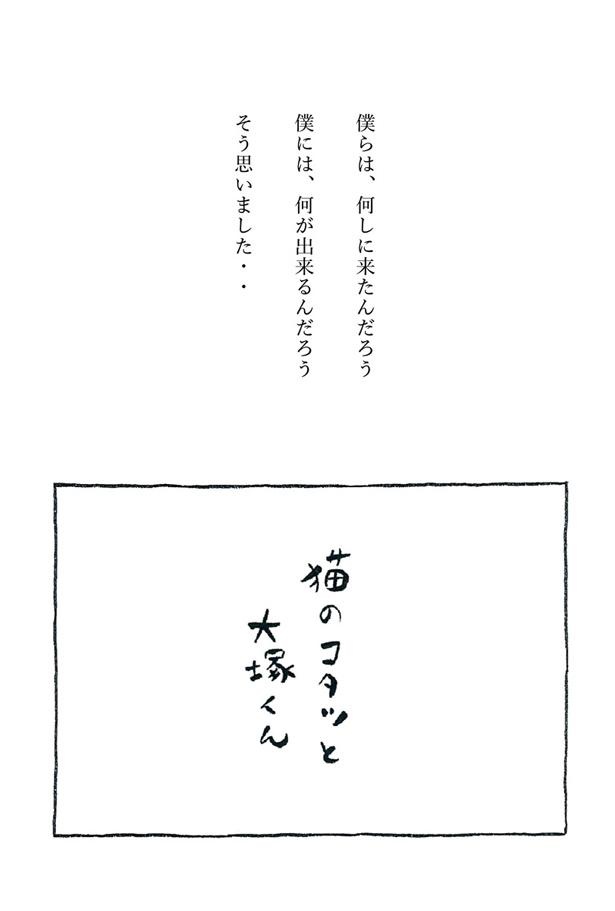 僕らは、何しに来たんだろう
僕には、何が出来るんだろう
そう思いました・・
猫のコタツと
大塚くん